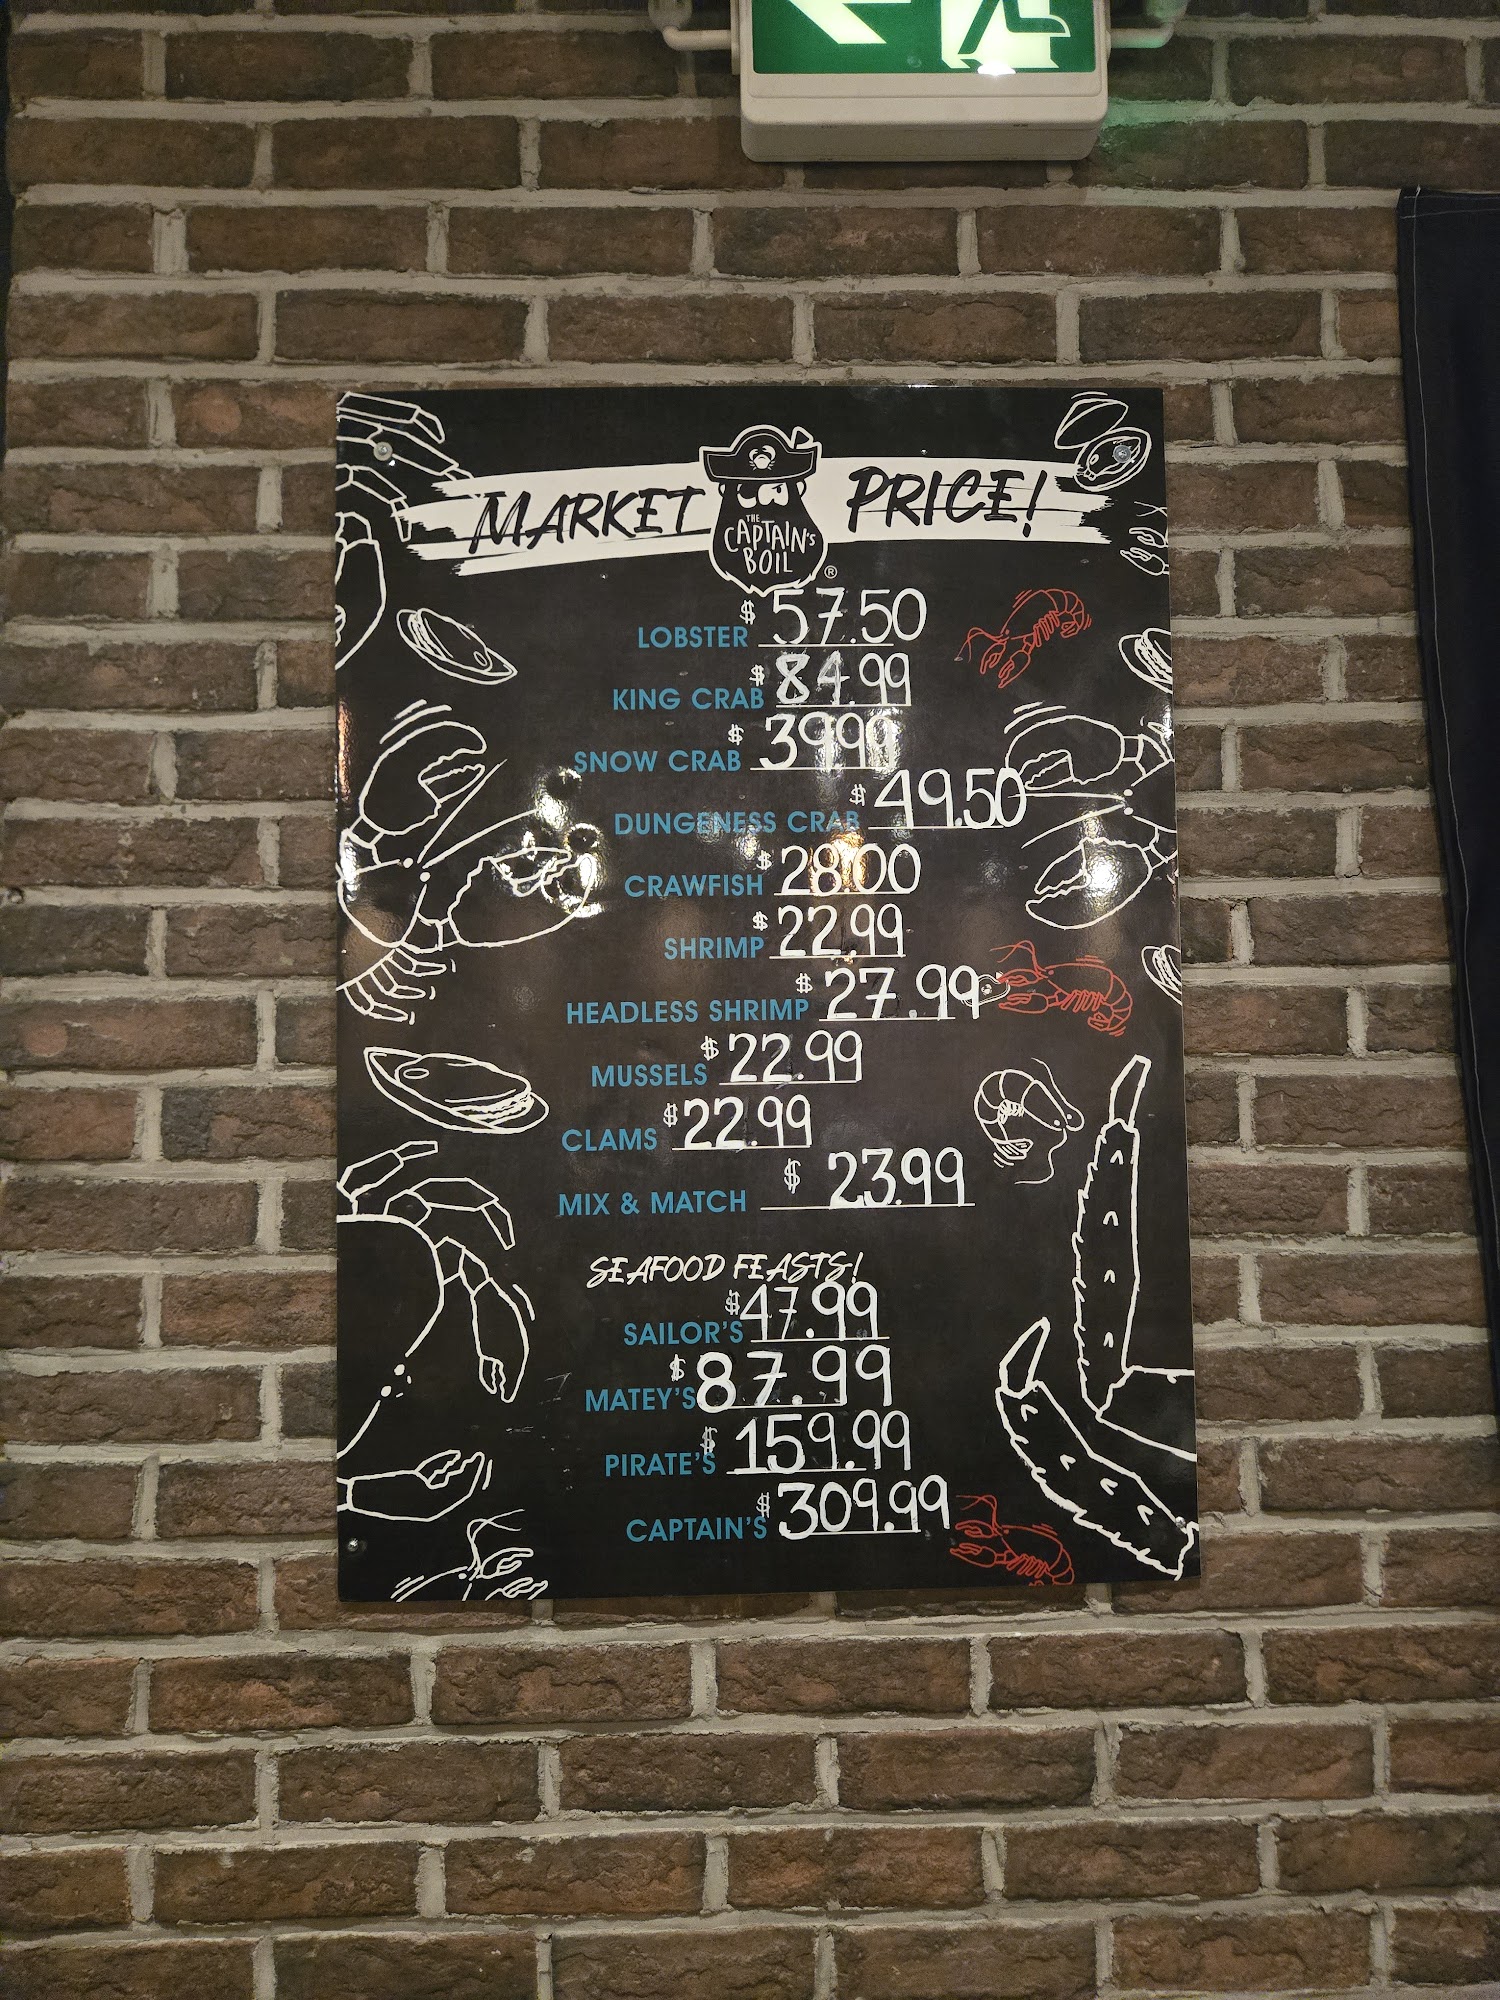 MARKET PRICE!
THE
CAPTAIN'S
BOIL
®
LOBSTER $ 57.50
KING CRAB $ 84.99
SNOW CRAB $ 39.99
DUNGENESS CRAB $ 49.50
CRAWFISH $ 28.00
SHRIMP $ 22.99
HEADLESS SHRIMP $ 27.99
MUSSELS $ 22.99
CLAMS $ 22.99
MIX & MATCH $ 23.99
SEAFOOD FEASTS!
SAILOR'S $ 47.99
MATEY'S $ 87.99
PIRATE'S $ 159.99
CAPTAIN'S $ 309.99